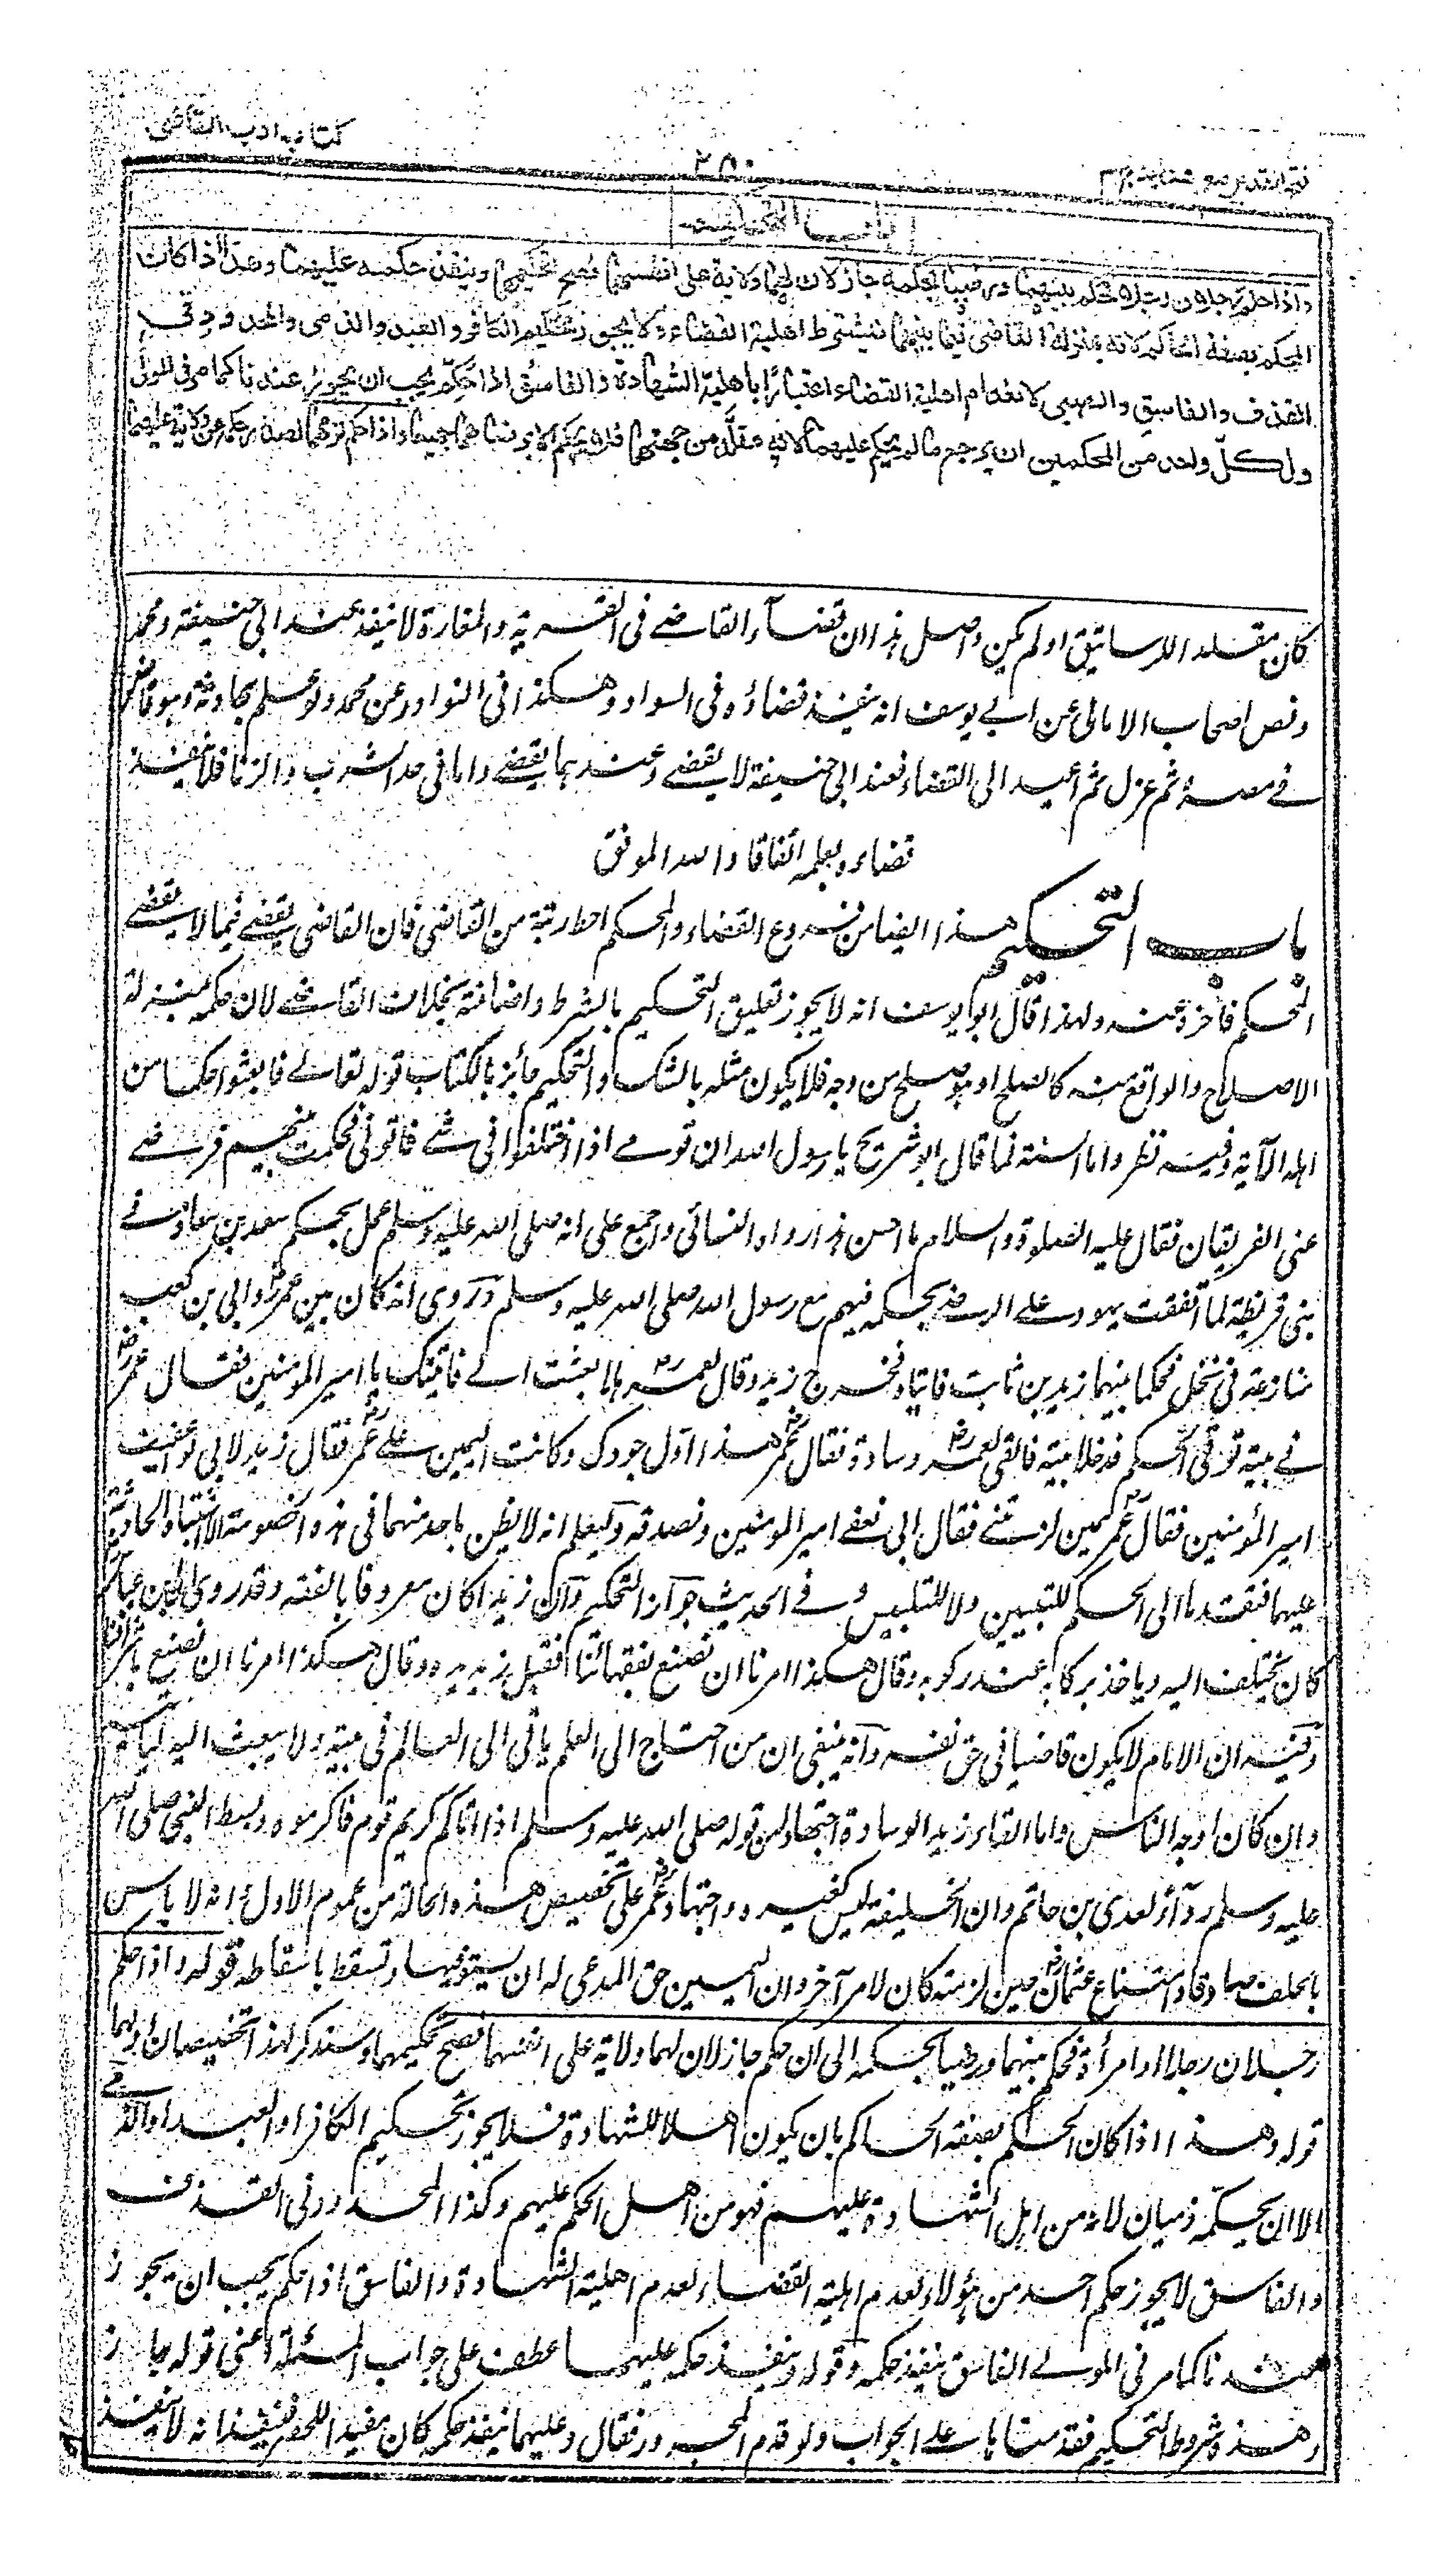 كتاب ادب القاضى
٢٨٠
فتح القدير مع هدايه ج٣
باب التحكيم
واذا حكم رجلان رجلا فحكم بينهما ورضيا بحكمه جاز لان لهما ولاية على انفسهما فصح تحكيمهما وينفذ حكمه عليهما وهذا اذا كان
المحكم بصفة الحاكم لانه بمنزلة القاضى فيما بينهما فيشترط اهلية القضاء ولا يجوز تحكيم الكافر والعبد والذمى والمحدود فى
القذف والفاسق والصبى لانعدام اهلية القضاء اعتبارًا باهلية الشهادة والفاسق اذا حكم يجب ان يجوز عندنا كما مر فى المولّٰى
ولكل واحد من المحكمين ان يرجع ما لم يحكم عليهما لانه مقلّد من جهتهما فلا يحكم الا برضاهما جميعا واذا حكم لزمهما لصدور حكمه عن ولاية عليهما
كان مقلد الرساتيق او لم يكن واصل هذا ان قضآء القاضے فى القرية والمفازة لا ينفذ عند ابى حنيفة ومحمد
ونص اصحاب الامالى عن ابے يوسف انه ينفذ قضاؤه فى السواد وهكذا فى النوادر عن محمد ولو علم بحادثة وهو قاض
فے مصره ثم عزل ثم اعيد الى القضاء فعند ابى حنيفة لا يقضے وعندهما يقضے واما فى حد الشرب والزنا فلا ينفذ
قضاءه بعلمه اتفاقا والله الموفق
باب التحكيم هذا ايضا من فروع القضاء والمحكم احط رتبة من القاضى فان القاضى يقضے فيما لا يقضے
المحكم فاخره عنه ولهذا قال ابو يوسف انه لا يجوز تعليق التحكيم بالشرط واضافته بخلاف القاضے لان حكمه بمنزلة
الاصلاح والواقع منه كالصلح او هو صلح من وجه فلا يكون مثله بالشك والتحكيم جائز بالكتاب قوله تعالے فابعثوا حكما من
اهله الآية وفيه نظر واما السنة فما قال ابو شريح يا رسول الله ان قومے اذا اختلفوا فى شے فاتونى فحكمت بينهم فرضے
عنى الفريقان فقال عليه الصلوة والسلام ما احسن هذا رواه النسائى واجمع على انه صلى الله عليه وسلم عمل بحكم سعد بن معاذ فے
بنى قريظة لما اتفقت يهود على الرضے بحكمه فيهم مع رسول الله صلى الله عليه وسلم وروى انه كان بين عمرؓ وابى بن كعب
منازعة فى نخل فحكما بينهما زيد بن ثابت فاتياه فخرج زيد وقال لعمرؓ هلا بعثت الے فاتيتك يا امير المؤمنين فقال عمرؓ
فے بيته توتى الحكم فدخلا بيته فالقى لعمرؓ وسادة فقال عمرؓ هذا اول جورك وكانت اليمين على عمرؓ فقال زيد لابى لو اعفيت
امير المؤمنين فقال عمرؓ يمين لزمتنے فقال ابى نعفے امير المؤمنين ونصدقه وليعلم انه لا يظن باحد منهما فى هذه الخصومة الا اشتباه الحادثة
عليهما فتقدما الى الحكم للتبيين ولا للتلبيس وفے الحديث جواز التحكيم وان زيدا كان معروفا بالفقه وقد روى ان ابن عباسؓ
كان يختلف اليه وياخذ بركابه عند ركوبه وقال هكذا امرنا ان نصنع بفقهائنا فقبل زيد يده وقال هكذا امرنا ان نصنع باشرافنا
وفيه ان الامام لا يكون قاضيا فى حق نفسه وانه ينبغى ان من احتاج الى العلم ياتى الى العالم فى بيته ولا يبعث اليه لياتيه
وان كان اوجه الناس واما القاء زيد الوسادة اجتهاد من قوله صلى الله عليه وسلم اذا اتاكم كريم قوم فاكرموه وبسط النبى صلى الله
عليه وسلم ردآئه لعدى بن حاتم وان الخليفة ليس كغيره واجتهاد عمرؓ على تخصيص هذه الحالة من عموم الاول انه لا باس
بالحلف صادقا وامتناع عثمانؓ حين لزمته كان لامر آخر وان اليمين حق المدعى له ان يستوفيها وتسقط باسقاطه قوله واذا حكم
رجلان رجلا او امرأة فحكم بينهما ورضيا بحكمه الى ان حكم جاز لان لهما ولاية على انفسهما فصح تحكيمهما وسنذكر لهذا تخصيصا
قوله وهذا اذا كان الحكم بصفة الحاكم بان يكون اهلا للشهادة فلا يجوز تحكيم الكافر او العبد او الذمے
الا ان يحكمه ذميان لانه من اهل الشهادة عليهم فهو من اهل الحكم عليهم وكذا المحدود فى القذف
والفاسق لا يجوز حكم احد من هؤلاء لعدم اهلية القضاء لعدم اهلية الشهادة والفاسق اذا حكم يجب ان يجوز
عندنا كما مر فى المولے الفاسق ينفذ حكمه وقوله وينفذ حكمه عليهما عطف على جواب المسئلة اعنى قوله جاز
وهذه شروط التحكيم فقدمنا بات على الجواب ولو قدم المجرور فقال وعليهما ينفذ حكمه كان مفيدا للحصر فيفيد انه لا ينفذ